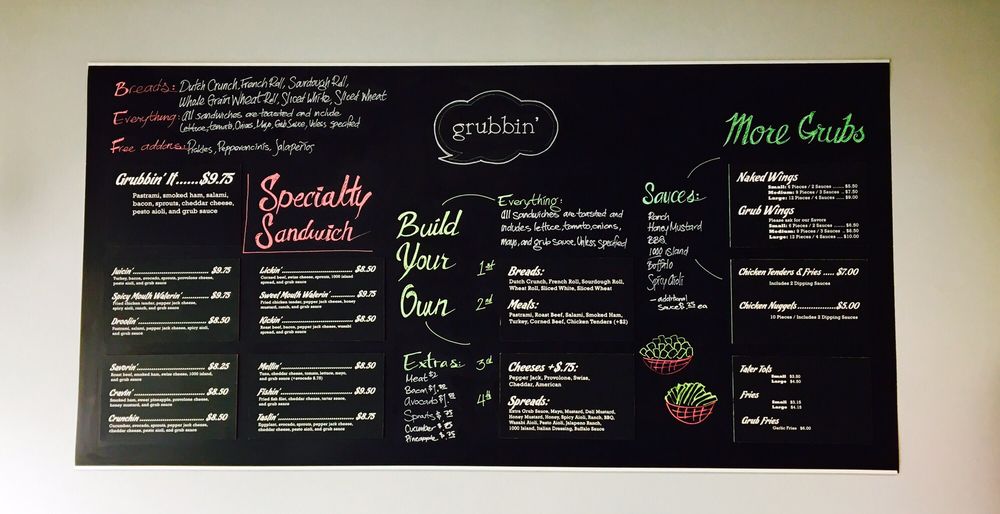 Breads: Dutch Crunch, French Roll, Sourdough Roll,
Whole Grain Wheat Roll, Sliced White, Sliced Wheat
Everything: All sandwiches are toasted and include
Lettuce, tomato, Onions, Mayo, Grub Sauce, Unless specified
Free addons: Pickles, Pepperoncinis, Jalapeños
grubbin'
More Grubs
Grubbin' It......$9.75
Pastrami, smoked ham, salami,
bacon, sprouts, cheddar cheese,
pesto aioli, and grub sauce
Specialty
Sandwich
Juicin' $9.75
Turkey, bacon, avocado, sprouts, provolone cheese,
pesto aioli, and grub sauce
Spicy Mouth Waterin' $9.75
Fried chicken tender, pepper jack cheese,
spicy aioli, and grub sauce
Droolin' $8.50
Pastrami, salami, pepper jack cheese, spicy aioli,
and grub sauce
Lickin' $8.50
Corned beef, swiss cheese, sprouts, 1000 island
spread, and grub sauce
Sweet Mouth Waterin' $9.75
Fried chicken tender, pepper jack cheese, honey
mustard, and grub sauce
Kickin' $8.50
Roast beef, bacon, pepper jack cheese, wasabi
spread, and grub sauce
Savorin' $8.25
Roast beef, smoked ham, swiss cheese, 1000 island,
and grub sauce
Cravin' $8.50
Smoked ham, sweet pineapple, provolone cheese,
honey mustard, and grub sauce
Crunchin' $8.50
Cucumber, avocado, sprouts, pepper jack cheese,
cheddar cheese, pesto aioli, and grub sauce
Meltin' $8.50
Tuna, cheddar cheese, tomato, lettuce, mayo,
and grub sauce
Fishin' $9.50
Fried fish filet, cheddar cheese, tartar sauce,
and grub sauce
Tastin' $8.75
Eggplant, avocado, sprouts, pepper jack cheese,
cheddar cheese, pesto aioli, and grub sauce
Build
Your
Own
Everything:
All sandwiches are toasted and
includes lettuce, tomato, onions,
mayo, and grub sauce. Unless specified
1st
Breads:
Dutch Crunch, French Roll, Sourdough Roll,
Wheat Roll, Sliced White, Sliced Wheat
2nd
Meats:
Pastrami, Roast Beef, Salami, Smoked Ham,
Turkey, Corned Beef, Chicken Tenders (+$2)
3rd
Cheeses +$.75:
Pepper Jack, Provolone, Swiss,
Cheddar, American
4th
Spreads:
Extra Grub Sauce, Mayo, Mustard, Deli Mustard,
Honey Mustard, Honey, Spicy Aioli, Ranch, BBQ,
Wasabi Aioli, Pesto Aioli, Jalapeno Ranch,
1000 Island, Italian Dressing, Buffalo Sauce
Extras:
Meat $2
Bacon $1.
Avocado $1.
Sprouts $.75
Cucumber $.
Pineapple $.75
Sauces:
Ranch
Honey Mustard
BBQ
1000 island
Buffalo
Spicy Aioli
- additional
Sauces ea
Naked Wings
Small: 6 Pieces / 2 Sauces $5.50
Medium: 9 Pieces / 3 Sauces $7.50
Large: 12 Pieces / 4 Sauces $9.00
Grub Wings
Please ask for our flavors
Small: 6 Pieces / 2 Sauces $6.50
Medium: 9 Pieces / 3 Sauces $8.50
Large: 12 Pieces / 4 Sauces $10.00
Chicken Tenders & Fries $7.00
Includes 2 Dipping Sauces
Chicken Nuggets $5.00
10 Pieces / Includes 3 Dipping Sauces
Tater Tots
Small $3.50
Large $4.50
Fries
Small $3.15
Large $4.15
Grub Fries
Garlic Fries $6.00